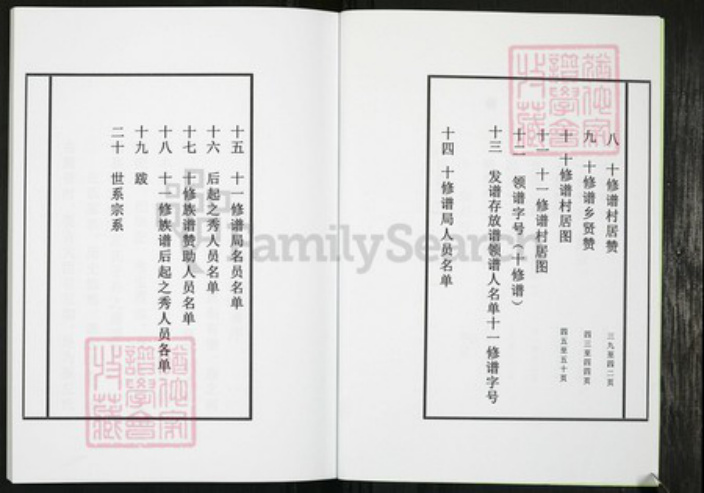 八 十修谱村居赞 三九至四二页
九 十修谱乡贤赞 四三至四四页
十 十修谱村居图 四五至五十页
十一 十一修谱村居图
十二 领谱字号（十修谱）
十三 发谱存放谱领谱人名单十一修谱字号
十四 十修谱局人员名单
十五 十一修谱局名员名单
十六 后起之秀人员名单
十七 十修族谱赞助人员名单
十八 十一修族谱后起之秀人员各单
十九 跋
二十 世系宗系
FamilySearch